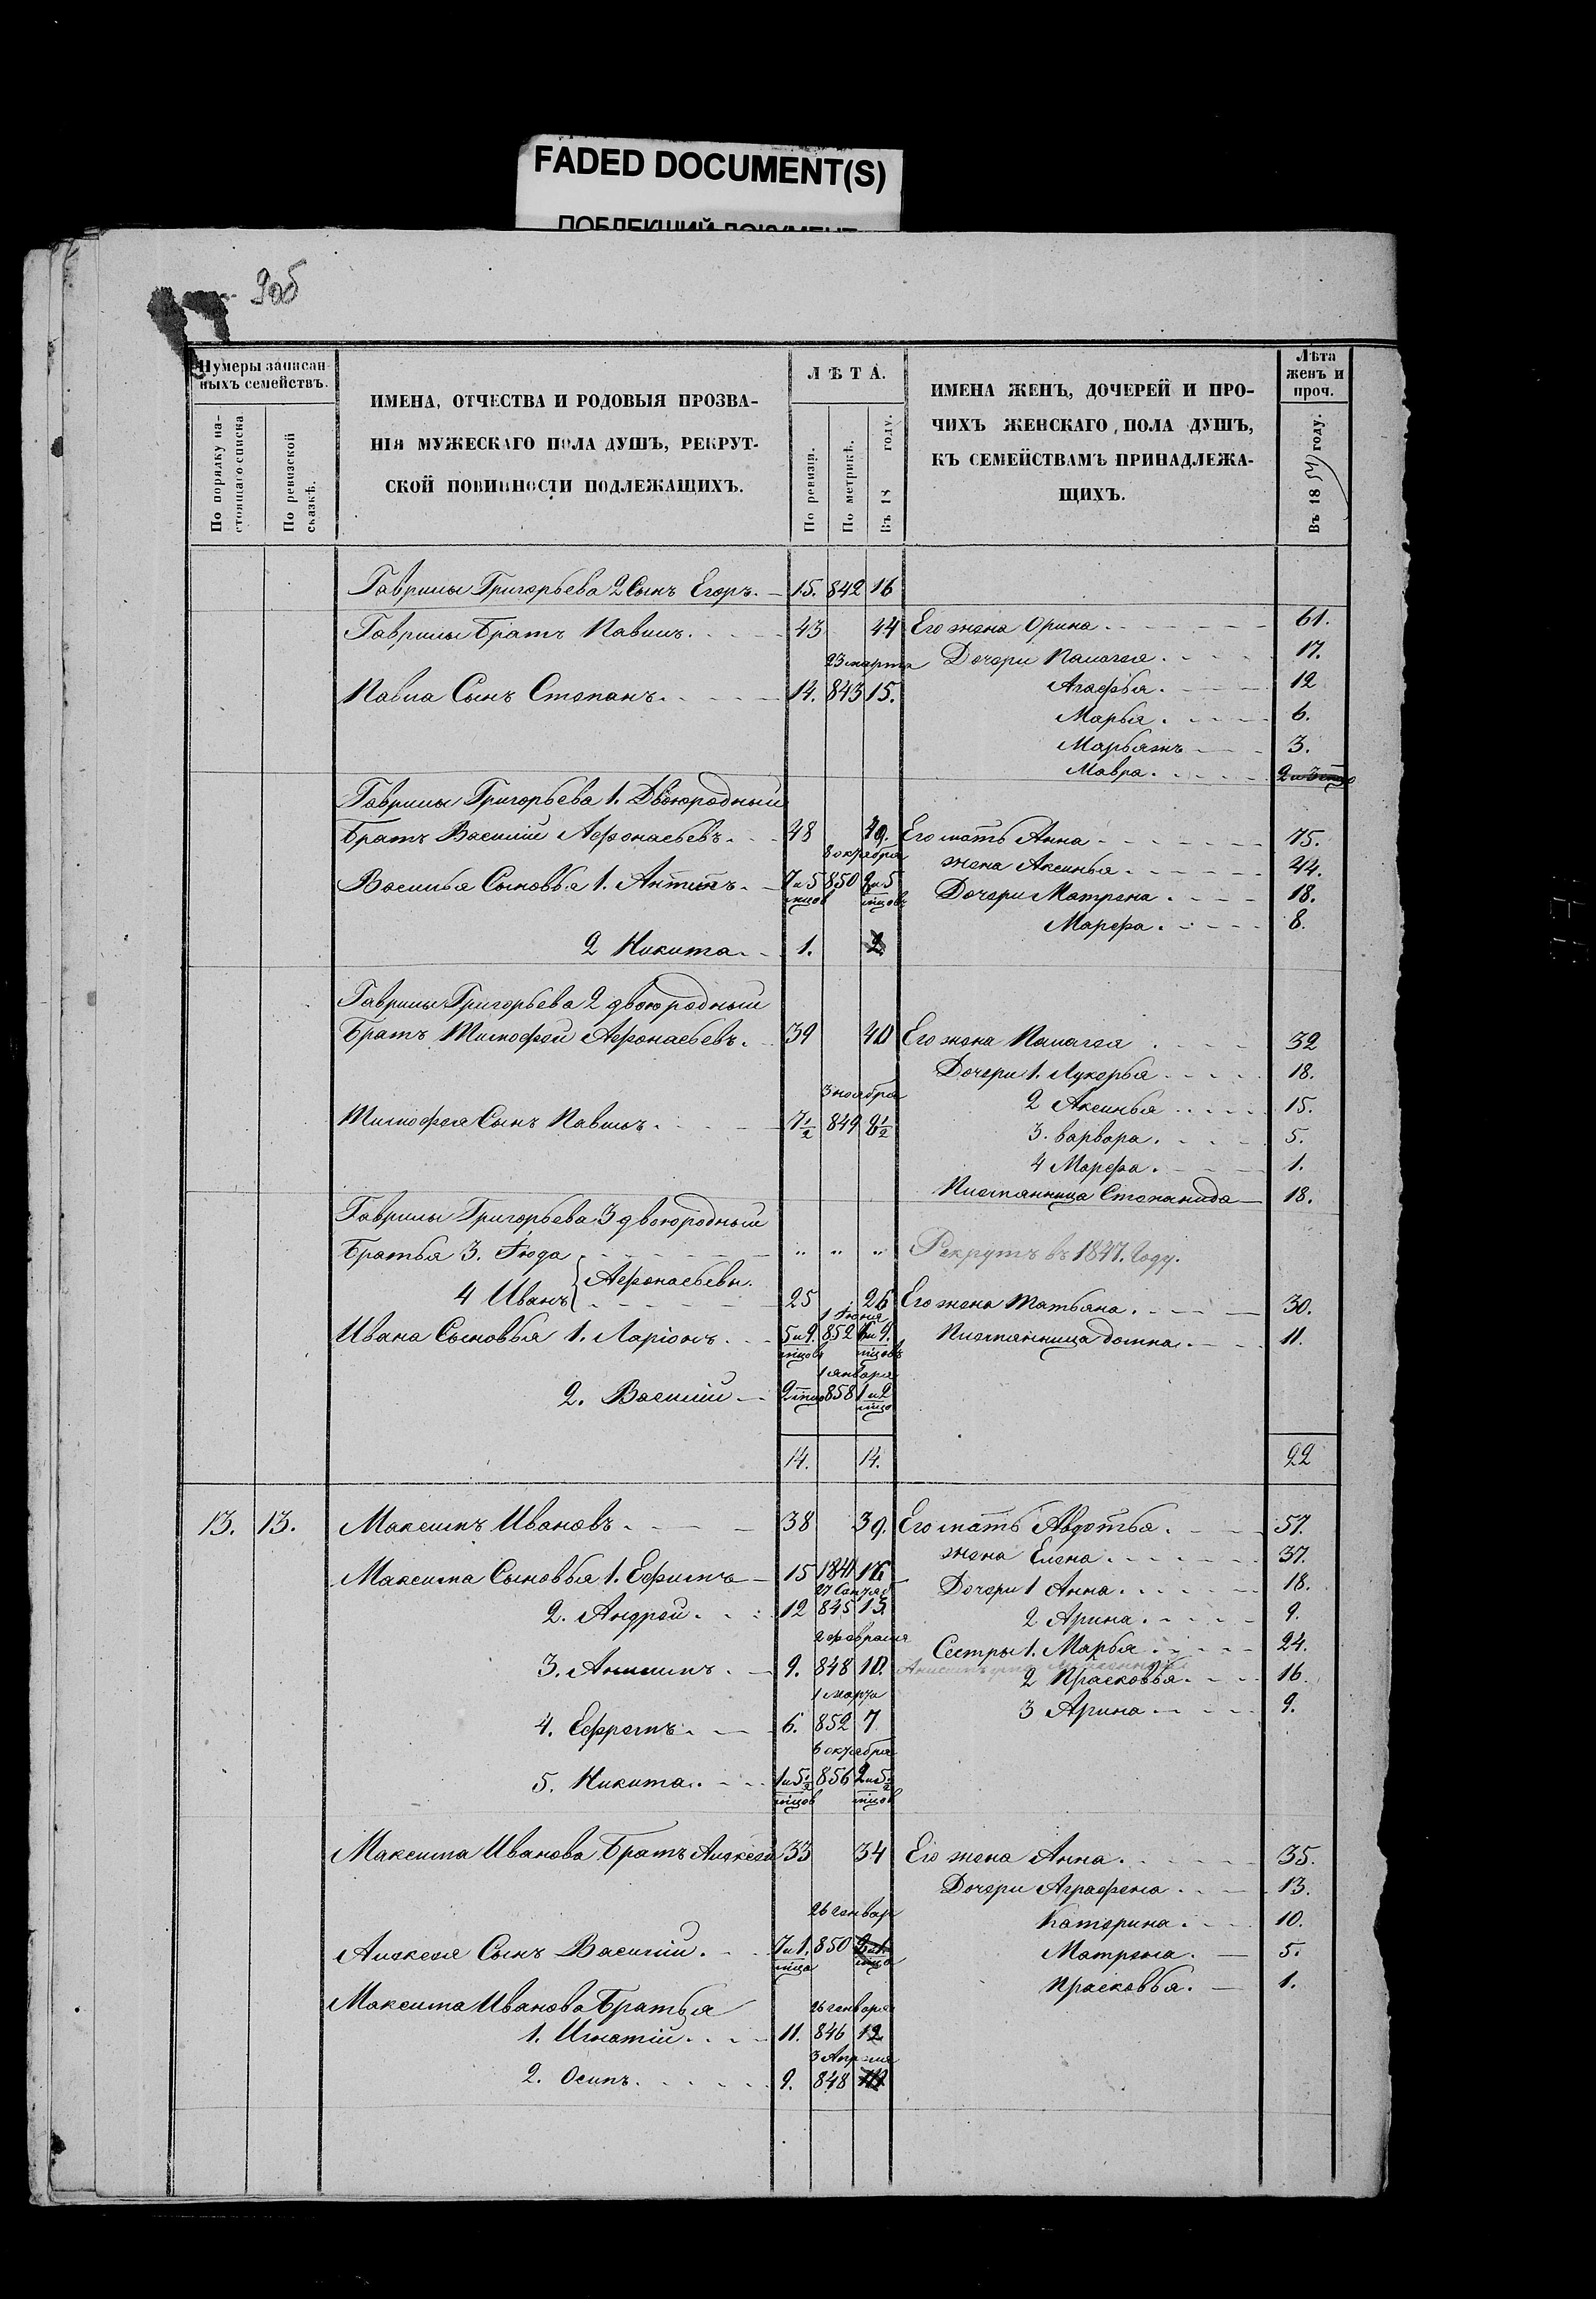 FADED DOCUMENT(S)
ПОБЛЕКШИЙ ДОКУМЕНТ
9об
Нумеры записанныхъ семействъ.
По порядку настоящаго списка
По ревизской сказкѣ.
ИМЕНА, ОТЧЕСТВА И РОДОВЫЯ ПРОЗВА-
НІЯ МУЖЕСКАГО ПОЛА ДУШЪ, РЕКРУТ-
СКОЙ ПОВИННОСТИ ПОДЛЕЖАЩИХЪ.
ЛѢТА.
По ревизіи.
По метрикѣ.
Въ 18 году.
ИМЕНА ЖЕНЪ, ДОЧЕРЕЙ И ПРО-
ЧИХЪ ЖЕНСКАГО ПОЛА ДУШЪ,
КЪ СЕМЕЙСТВАМЪ ПРИНАДЛЕЖА-
ЩИХЪ.
Лѣта женъ и проч.
Въ 18 году.
Гаврилы Григорьева 2 Сынъ Егоръ. 15. 842 16
Гаврилы Братъ Павилъ. 43 44 Его жена Орина 61.
23 марта Дочери Палагея. 17.
Павла Сынъ Степанъ. 14. 843 15. Агафья. 12
Марья. 6.
Марьямъ 3.
Мавра.
Гаврилы Григорьева 1. Двоюродный
Братъ Василій Афонасьевъ. 48 49. Его мать Анна 75.
8 октября жена Аксинья 44.
Василья Сыновья 1. Антипъ. 7 и 5 мцов 850 8 и 5 мцовъ Дочери Матрена. 18.
Марфа. 8.
2 Никита 1. 2
Гаврилы Григорьева 2 двоюродный
Братъ Тимофей Афонасьевъ. 39 40 Его жена Палагея 32
Дочери 1. Лукерья 18.
3 ноября 2 Аксинья 15.
Тимофея Сынъ Павилъ. 7 1/2 849 8 1/2 3. варвара. 5.
4 Марфа. 1.
Племянница Степанида 18.
Гаврилы Григорьева 3 двоюродный
Братья 3. Июда " " " Рекрутъ въ 1847. Году.
4 Иванъ Афонасьевы. 25 26 Его жена Татьяна. 30.
1 Июня
Ивана Сыновья 1. Ларіонъ. 5 и 9. мцовъ 852 6 и 9. мцовъ Племянница домна. 11.
1 января
2. Василій 2 мцо 858 1 и 2 мцо
14. 14. 22
13. 13. Максимъ Ивановъ. 38 39. Его мать Авдотья. 57.
жена Елена 37.
Максима Сыновья 1. Ефимъ 15 1841 16 Дочери 1 Анна. 18.
2. Андрей. 12 845 13 2 Арина. 9.
2 февраля Сестры 1. Марья 24.
3. Анисимъ. 9. 848 10. 2 Прасковья. 16.
1 марта
4. Ефремъ. 6. 852 7 3 Арина 9.
6 октября
5. Никита. 1 и 5 1/2 мцов 856 2 и 5 1/2 мцов
Максима Иванова Братъ Алексей 33 34 Его жена Анна. 35.
Дочери Аграфена 13.
26 генвар Катерина. 10.
Алексея Сынъ Василій. 7 и 1. мца 850 Матрена. 5.
Прасковья. 1.
Максима Иванова Братья 26 генваря
1. Игнатій. 11. 846 12
3 Апреля
2. Осипъ. 9. 848